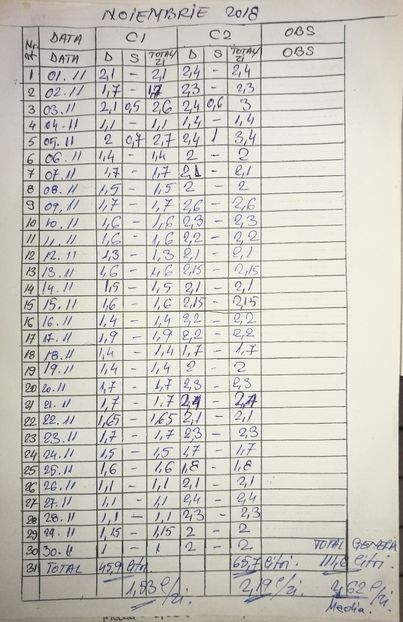 NOIEMBRIE 2018
Nr. DATA C1 C2 OBS
st. DATA D S TOTAL/ZI D S TOTAL/ZI OBS
1 01.11 2,1 - 2,1 2,4 - 2,4
2 02.11 1,7 - 1,7 2,3 - 2,3
3 03.11 2,1 0,5 2,6 2,4 0,6 3
4 04.11 1,1 - 1,1 1,4 - 1,4
5 05.11 2 0,7 2,7 2,4 1 3,4
6 06.11 1,4 - 1,4 2 - 2
7 07.11 1,7 - 1,7 2,1 - 2,1
8 08.11 1,5 - 1,5 2 - 2
9 09.11 1,7 - 1,7 2,6 - 2,6
10 10.11 1,6 - 1,6 2,3 - 2,3
11 11.11 1,6 - 1,6 2,2 - 2,2
12 12.11 1,3 - 1,3 2,1 - 2,1
13 13.11 1,6 - 1,6 2,15 - 2,15
14 14.11 1,5 - 1,5 2,1 - 2,1
15 15.11 1,6 - 1,6 2,15 - 2,15
16 16.11 1,4 - 1,4 2,2 - 2,2
17 17.11 1,9 - 1,9 2,2 - 2,2
18 18.11 1,4 - 1,4 1,7 - 1,7
19 19.11 1,4 - 1,4 2 - 2
20 20.11 1,7 - 1,7 2,3 - 2,3
21 21.11 1,7 - 1,7 -
22 22.11 1,65 - 1,65 2,1 - 2,1
23 23.11 1,7 - 1,7 2,3 - 2,3
24 24.11 1,5 - 1,5 1,7 - 1,7
25 25.11 1,6 - 1,6 1,8 - 1,8
26 26.11 1,1 - 1,1 2,1 - 2,1
27 27.11 1,1 - 1,1 2,4 - 2,4
28 28.11 1,1 - 1,1 2,3 - 2,3
29 29.11 1,15 - 1,15 2 - 2
30 30.11 1 - 1 2 - 2 TOTAL GENERAL
31 TOTAL 45,9 litri. 65,7 litri. 111,6 litri.
1,53 l/zi. 2,19 l/zi. l/zi.
Media.